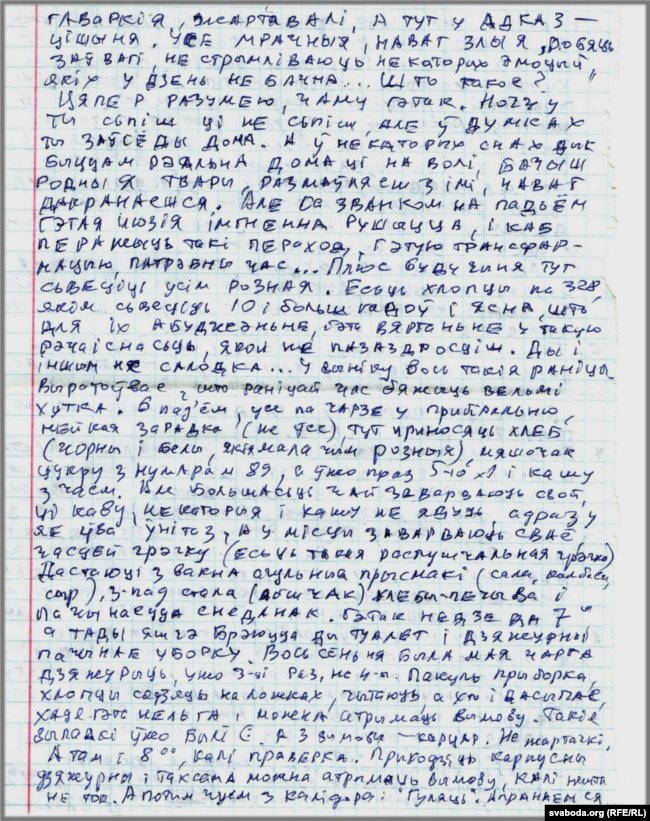 ГЛАВАРКІЯ, ЖАРТАВАЛІ, А ТУТ У АДКАЗ —
ЦІШЫНЯ. УСЕ МРАЧНЫЯ, НАВАТ ЗЛЫЯ, РОБЯЦЬ
ЗАЎВАГІ, НЕ СТРЫМЛІВАЮЦЬ НЕКАТОРЫХ ЭМОЦЫЙ,
ЯКІХ У ДЗЕНЬ НЕ БАЧНА... ШТО такое?
ЦЯПЕР РАЗУМЕЮ, ЧАМУ ГЭТАК. НОЧЧУ
ТЫ СЬПІШ ЦІ НЕ СЬПІШ, АЛЕ Ў ДУМКАХ
ТЫ ЗАЎСЁДЫ ДОМА. А Ў НЕКАТОРЫХ СНАХ ДЫК
БЫЦЦАМ РЭАЛЬНА ДОМА ЦІ НА ВОЛІ, БАЧЫШ
РОДНЫЯ ТВАРЫ, РАЗМАЎЛЯЕШ З ІМІ, НАВАТ
ДАКРАНАЕШСЯ. АЛЕ СА ЗВАНКОМ НА ПАДЪЁМ
ГЭТАЯ ІЛЮЗІЯ ІМГНЕННА РУШЫЦЦА, І КАБ
ПЕРАЖЫЦЬ ТАКІ ПЕРАХОД, ГЭТУЮ ТРАНСФАР-
МАЦЫЮ, ПАТРЭБНЫ ЧАС... Плюс будучыня тут
сьвеціць усім розная. Есьць хлопцы па 328,
якім сьвеціць 10 і больш гадоў і ясна, што
для іх абуджэньне, гэта вяртаньне ў такую
рэчаіснасьць, якой не пазаздросціш. Ды і
іншым не салодка... У выніку вось такія раніцы.
Выратоўвае, што раніцай час бяжыць вельмі
хутка. 6 пад'ём, усе па чарзе у прыбіральню,
нейкая зарадка (не ўсе), тут прыносяць хлеб
(чорны і белы, якія мала чым розныя), мяшочак
цукру з нумарам 89, а ўжо праз 5-10 хв і кашу
з чаем. Але большасьць чай заварваюць свой,
ці каву, некаторыя і кашу не ядуць, адразу
яе ўва ўнітаз, а у місцы заварваюць сваё,
часцей грэчку (есьць такая распушчальная грэчка)
Дастаюць з вакна агульныя прысмакі (сала, колбасу,
сыр), з-пад стала (абшчак) хлебы-печыва і
пачынаецца снеданак. Гэтак недзе да 7⁰⁰
а тады яшчэ брэюцца ды туалет і дзяжурны
пачынае уборку. Вось сёньня была мая чарга
дзяжурыць, ужо 3-ці раз, не 4-ы. Пакуль прыборка,
хлопцы сядзяць на ложках, чытаюць, а хто і дасыпае,
хаця гэта нельга і можна атрымаць вымову. Такія
выпадкі ўжо былі. А 3 вымовы — карцар. Не жартачкі,
А там і 8⁰⁰, калі праверка. Прыходзіць карпусны
дзяжурны і таксама можна атрымаць вымову, калі нешта
не так. А потым чуем з калідора: "Гуляць". Апранаемся,
svaboda.org (RFE/RL)